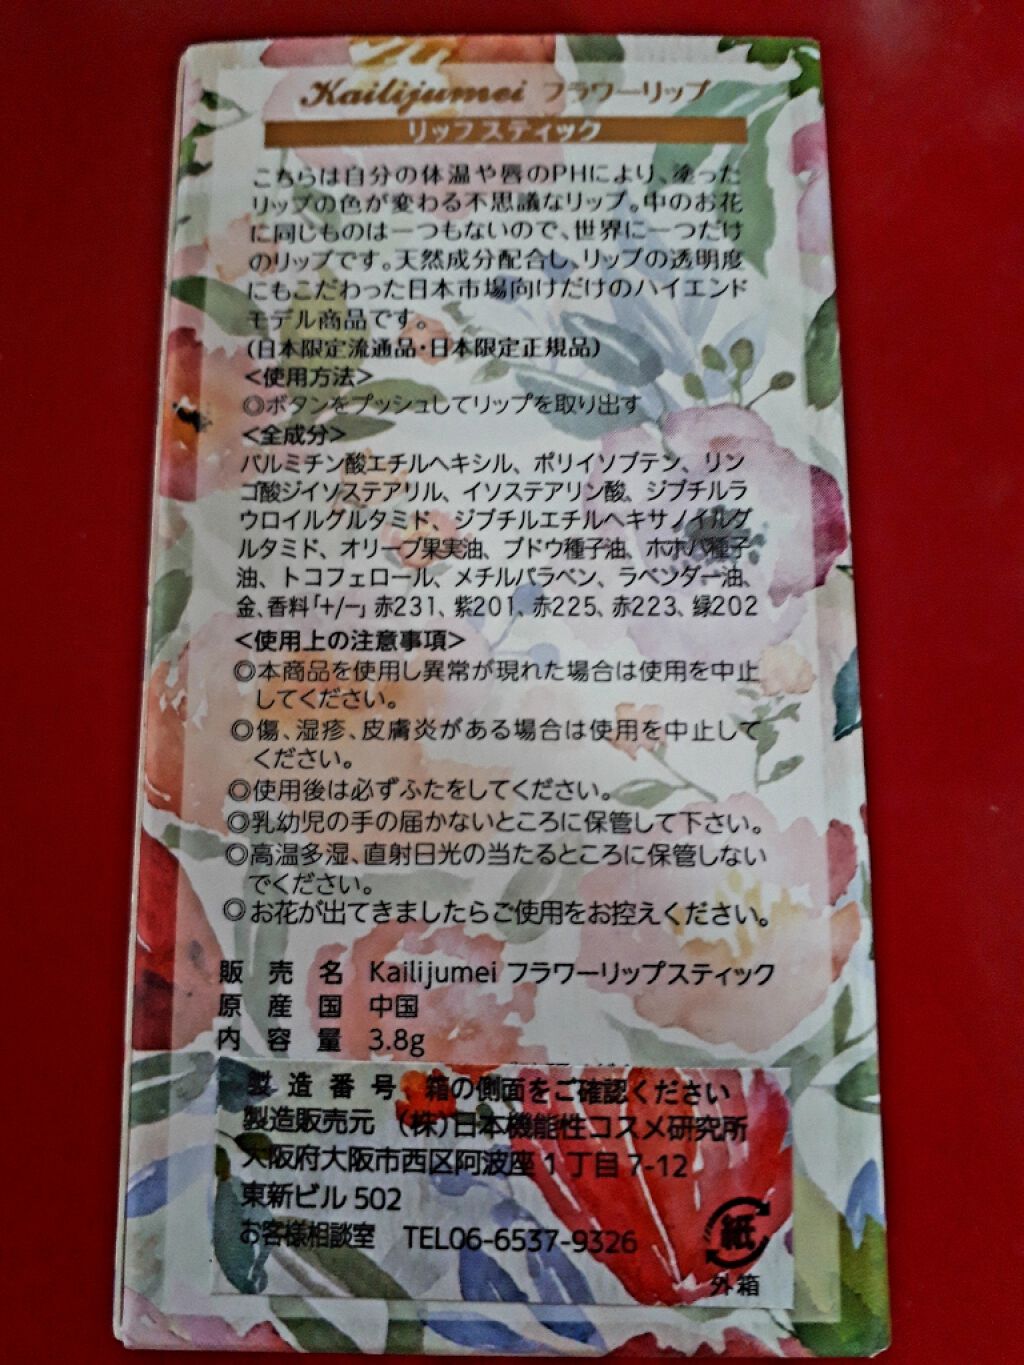 Kailijumei フラワーリップ
リップスティック
こちらは自分の体温や唇のPHにより、塗った
リップの色が変わる不思議なリップ。中のお花
に同じものは一つもないので、世界に一つだけ
のリップです。天然成分配合し、リップの透明度
にもこだわった日本市場向けだけのハイエンド
モデル商品です。
(日本限定流通品・日本限定正規品)
<使用方法>
◎ボタンをプッシュしてリップを取り出す
<全成分>
パルミチン酸エチルヘキシル、ポリイソブテン、リン
ゴ酸ジイソステアリル、イソステアリン酸、ジブチルラ
ウロイルグルタミド、ジブチルエチルヘキサノイルグ
ルタミド、オリーブ果実油、ブドウ種子油、ホホバ種子
油、トコフェロール、メチルパラベン、ラベンダー油、
金、香料「+/−」赤231、紫201、赤225、赤223、緑202
<使用上の注意事項>
◎本商品を使用し異常が現れた場合は使用を中止
してください。
◎傷、湿疹、皮膚炎がある場合は使用を中止して
ください。
◎使用後は必ずふたをしてください。
◎乳幼児の手の届かないところに保管して下さい。
◎高温多湿、直射日光の当たるところに保管しない
でください。
◎お花が出てきましたらご使用をお控えください。
販売名 Kailijumei フラワーリップスティック
原産国 中国
内容量 3.8g
製造番号 箱の側面をご確認ください
製造販売元 (株)日本機能性コスメ研究所
大阪府大阪市西区阿波座1丁目7-12
東新ビル502
お客様相談室 TEL06-6537-9326
紙
外箱